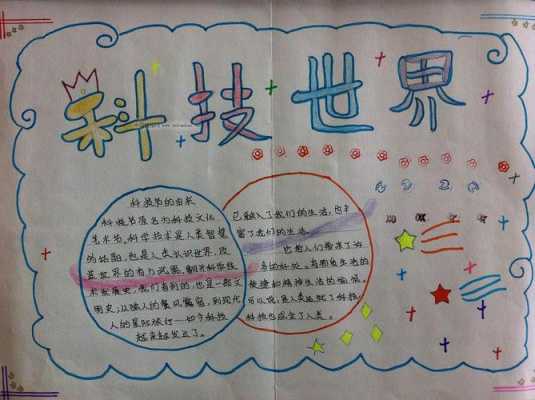 科技世界
科技节的由来
科技节原名为科技文化
艺术节。科学技术是人类智慧
的结晶，也是人类认识世界，改
造世界的有力武器，翻开科学技
术发展史，我们看到的，也是一部文
明史，从猿人的
人的星际旅行——如今科技
越来越发达了。
已融入了我们的生活，也丰
富了我们的生活。
也给人们带来了许
多的好处。
便捷和精神生活的愉悦。
可以说，是人类造就了科技，
科技也成全了人类。